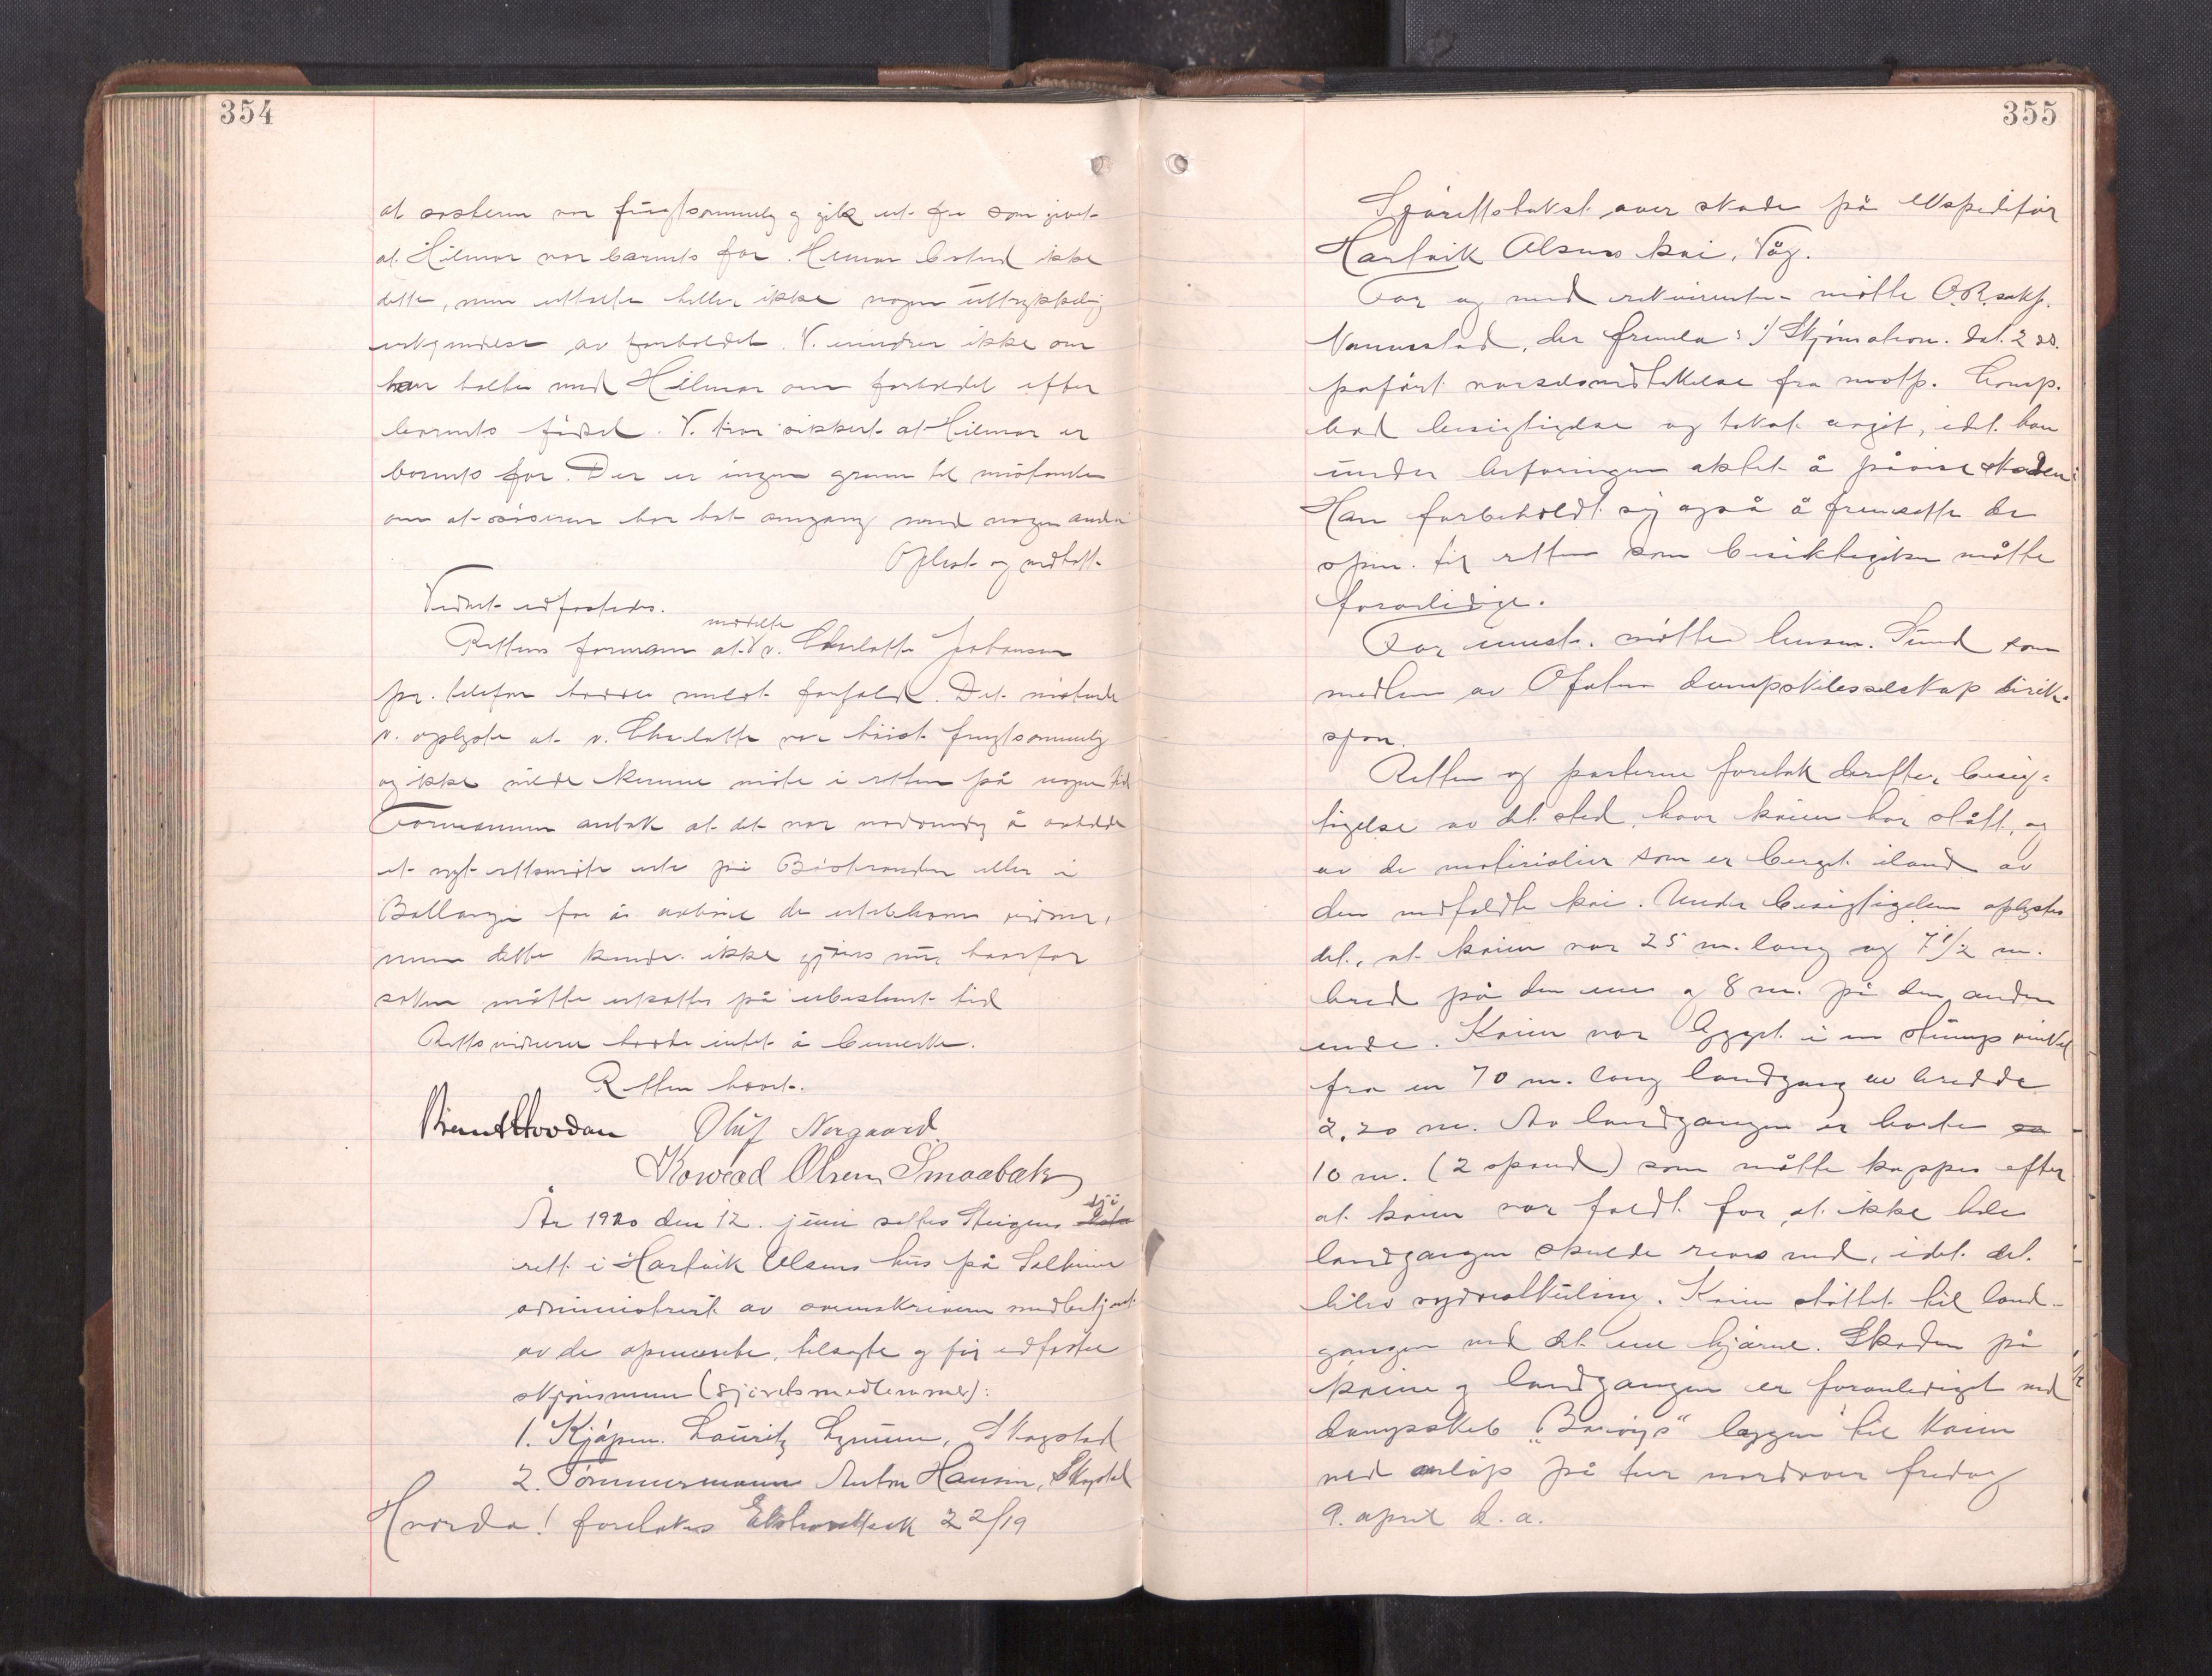 354
at søsteren var frugtsommelig og gik ut fra som givet
at Hilmar var barnets far. Hilmar bestred ikke
dette, men uttalte heller ikke nogen uttrykkelig
erkjendelse av forholdet. V. mindes ikke om
han talte med Hilmar om forholdet efter
barnets fødsel. V. tror sikkert at Hilmar er
barnets far. Der er ingen grunn til mistanke
om at søsteren har hat omgang med nogen anden
Oplest og vedtatt.
Vidnet edfæstedes.
Rettens formann meddelte at v. Charlotte Johansen
pr. telefon hadde meldt forfald. Det møtende
v. oplyste at v. Charlotte var høist frugtsommelig
og ikke vilde kunne møte i retten på nogen tid
Formannen antok at det var nødvendig å avholde
et nyt rettsmøte ute på Bøstranden eller i
Ballangen for å avhøre de uteblevne vidner,
men dette kunde ikke gjøres nu, hvorfor
saken måtte utsættes på ubestemt tid
Rettsvidnerne hadde intet å bemerke.
Retten hævet.
Oluf Norgaard
Konrad Olsen Smaabakk
År 1920 den 12. juni sattes Steigens sjø
rett i Hartvik Olsens hus på
administrert av sorenskriveren medbetjent
av de opnævnte, tilsagte og før edfæstede
skjønsmenn (sjørettsmedlemmer):
1. Kjøpm. Lauritz Lynum, Skogstad
2. Tømmermann Anton Hansen, Skogstad
Hvorda! foretakes 22/19
355
Sjørettstakst over skade på ekspeditør
Hartvik Olsens kai, Våg.
For og med rekvirenten møtte O.R.sakf.
der fremla: 1/ Skjønsbegj. dat. 2 ds.
påført varselsvedtakelse fra motp. Comp.
bad besigtigelse og takst avgit, idet han
under befaringen aktet å påvise skaden.
Han forbeholdt sig også å fremsætte de
spm. til retten som besiktigelsen måtte
foranledige.
For møtte lensm. Sund som
medlem av Ofotens dampskibsselskaps direk-
sjon.
Retten og parterne foretok derefter besig-
tigelse av det sted, hvor kaien har stått, og
av de materialier som er berget iland av
den nedfaldte kai. Under besigtigelsen oplystes
det, at kaien var 25 m. lang og 7 1/2 m.
bred på den ene og 8 m. på den anden
ende. Kaien var bygget i en stump vinkel
fra en 70 m. lang landgang av bredde
2,20 m. Av landgangen er borte
10 m. (2 spand) som måtte kappes efter
at kaien var faldt for at ikke hele
landgangen skulde rives ned, idet det
blev sydvestkuling. Kaien støttet til land-
gangen med det ene hjørne. Skaden på
kaien og landgangen er foranlediget ved
dampskib "Barøys" læggen til kaien
ved anløp på tur nordover fredag
9. april d. a.